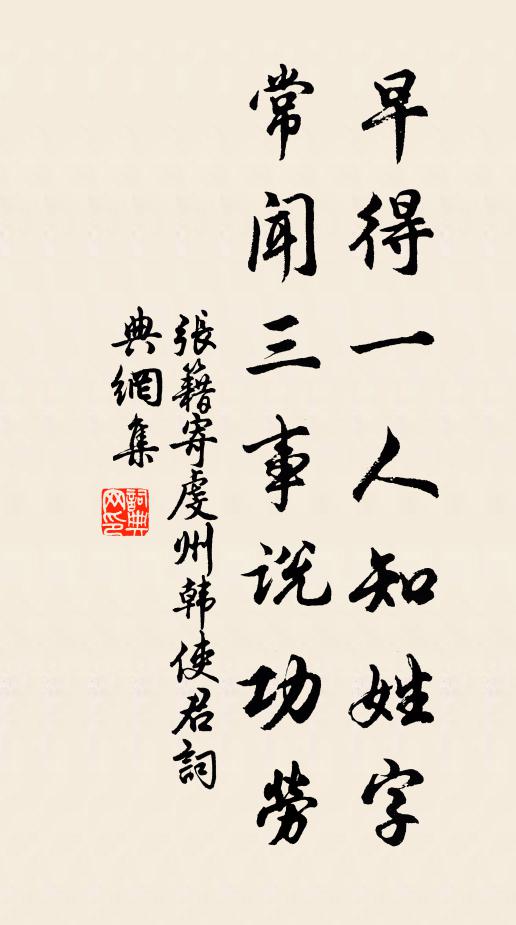 早得一人知姓字
常闻三事说功劳
張籍寄虔州韩使君詞
典網集
詞典网印